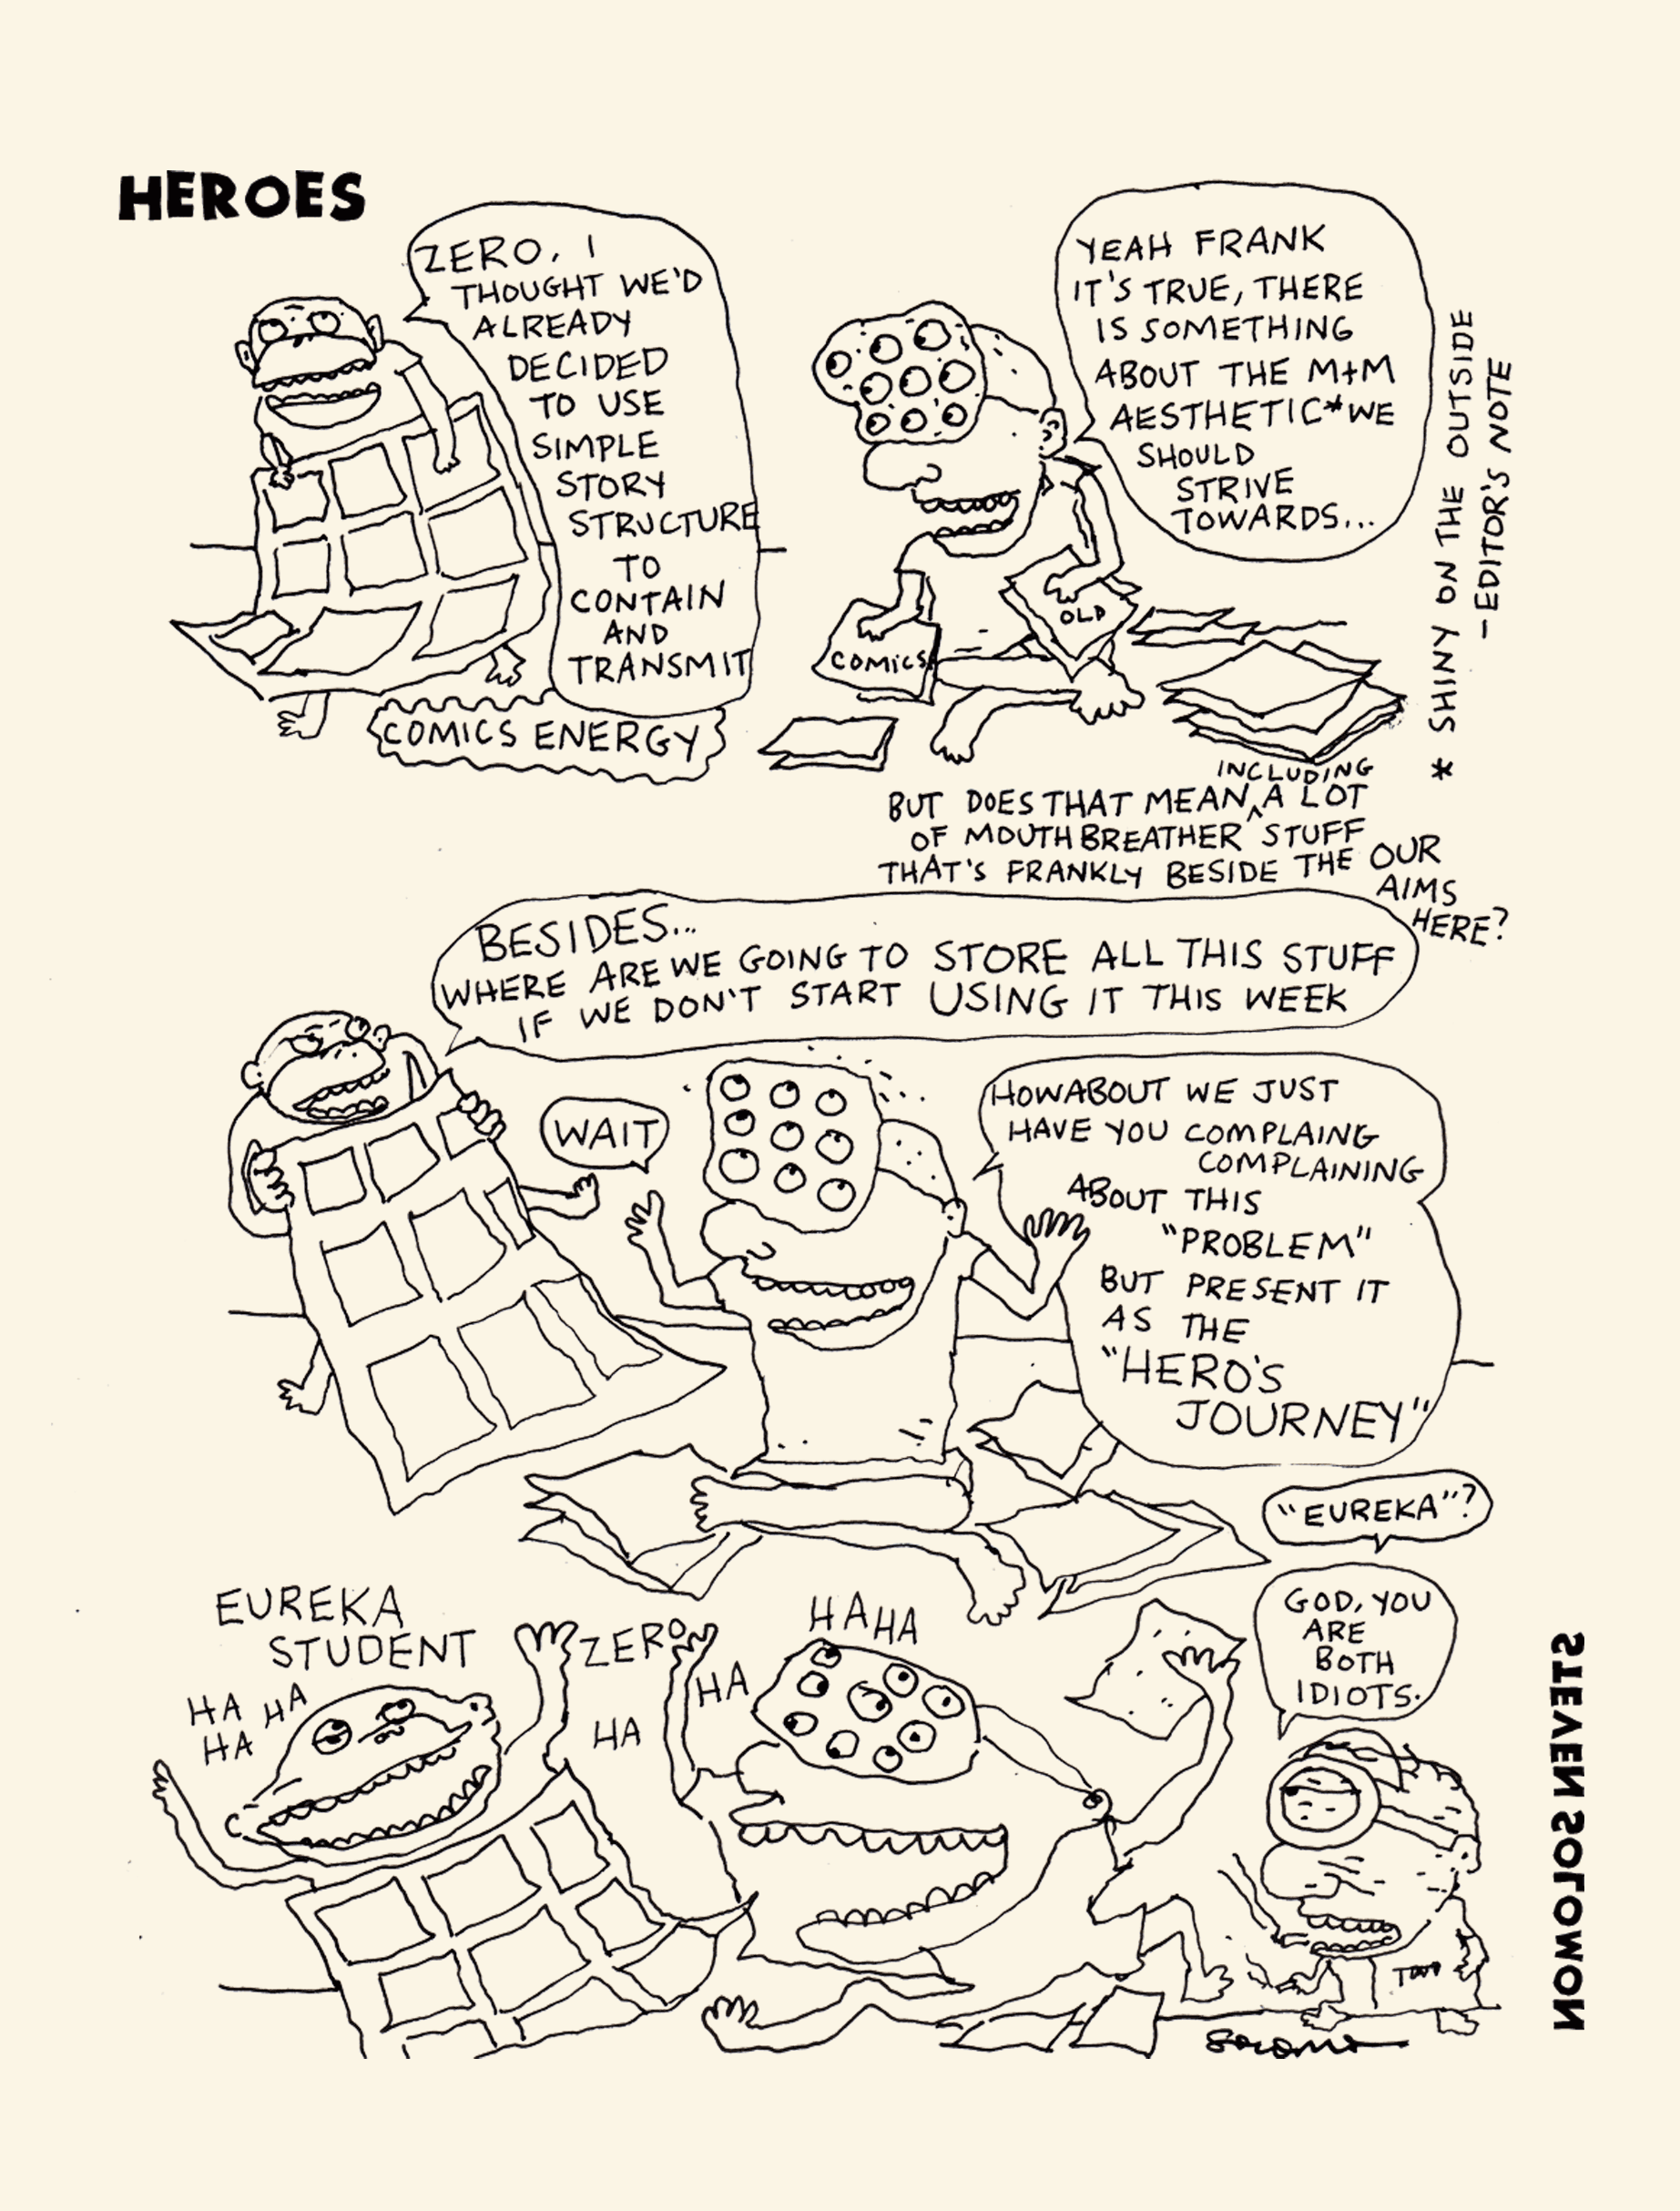 HEROES
ZERO, I
THOUGHT WE'D
ALREADY
DECIDED
TO USE
SIMPLE
STORY
STRUCTURE
TO
CONTAIN
AND
TRANSMIT
COMICS ENERGY
YEAH FRANK
IT'S TRUE, THERE
IS SOMETHING
ABOUT THE M+M
AESTHETIC* WE
SHOULD
STRIVE
TOWARDS...
* SHINY ON THE OUTSIDE
- EDITOR'S NOTE
COMICS
OLD
INCLUDING
BUT DOES THAT MEAN ^ A LOT
OF MOUTHBREATHER STUFF
THAT'S FRANKLY BESIDE THE OUR
AIMS
HERE?
BESIDES...
WHERE ARE WE GOING TO STORE ALL THIS STUFF
IF WE DON'T START USING IT THIS WEEK
WAIT
HOWABOUT WE JUST
HAVE YOU COMPLAING
COMPLAINING
ABOUT THIS
"PROBLEM"
BUT PRESENT IT
AS THE
"HERO'S
JOURNEY"
"EUREKA"?
EUREKA
STUDENT
ZERO
HA HA
HA
HA
HA
HAHA
GOD, YOU
ARE
BOTH
IDIOTS.
STEVEN SOLOMON